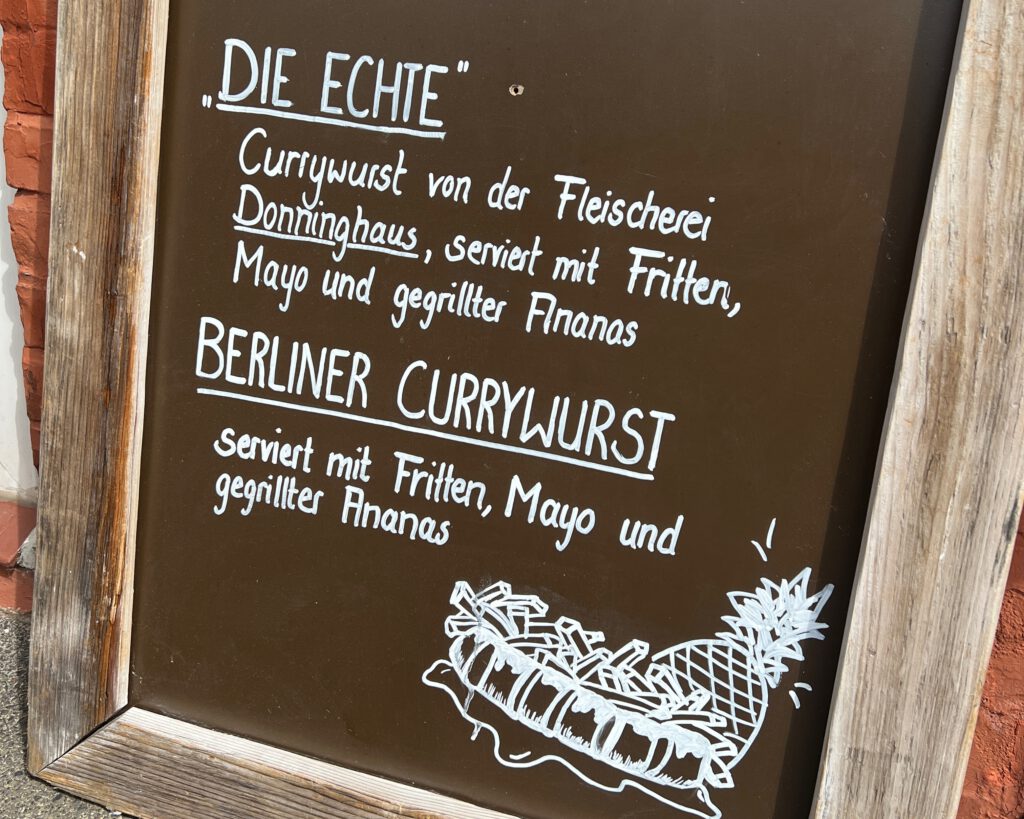 „DIE ECHTE"
Currywurst von der Fleischerei
Donninghaus, serviert mit Fritten,
Mayo und gegrillter Ananas
BERLINER CURRYWURST
serviert mit Fritten, Mayo und
gegrillter Ananas